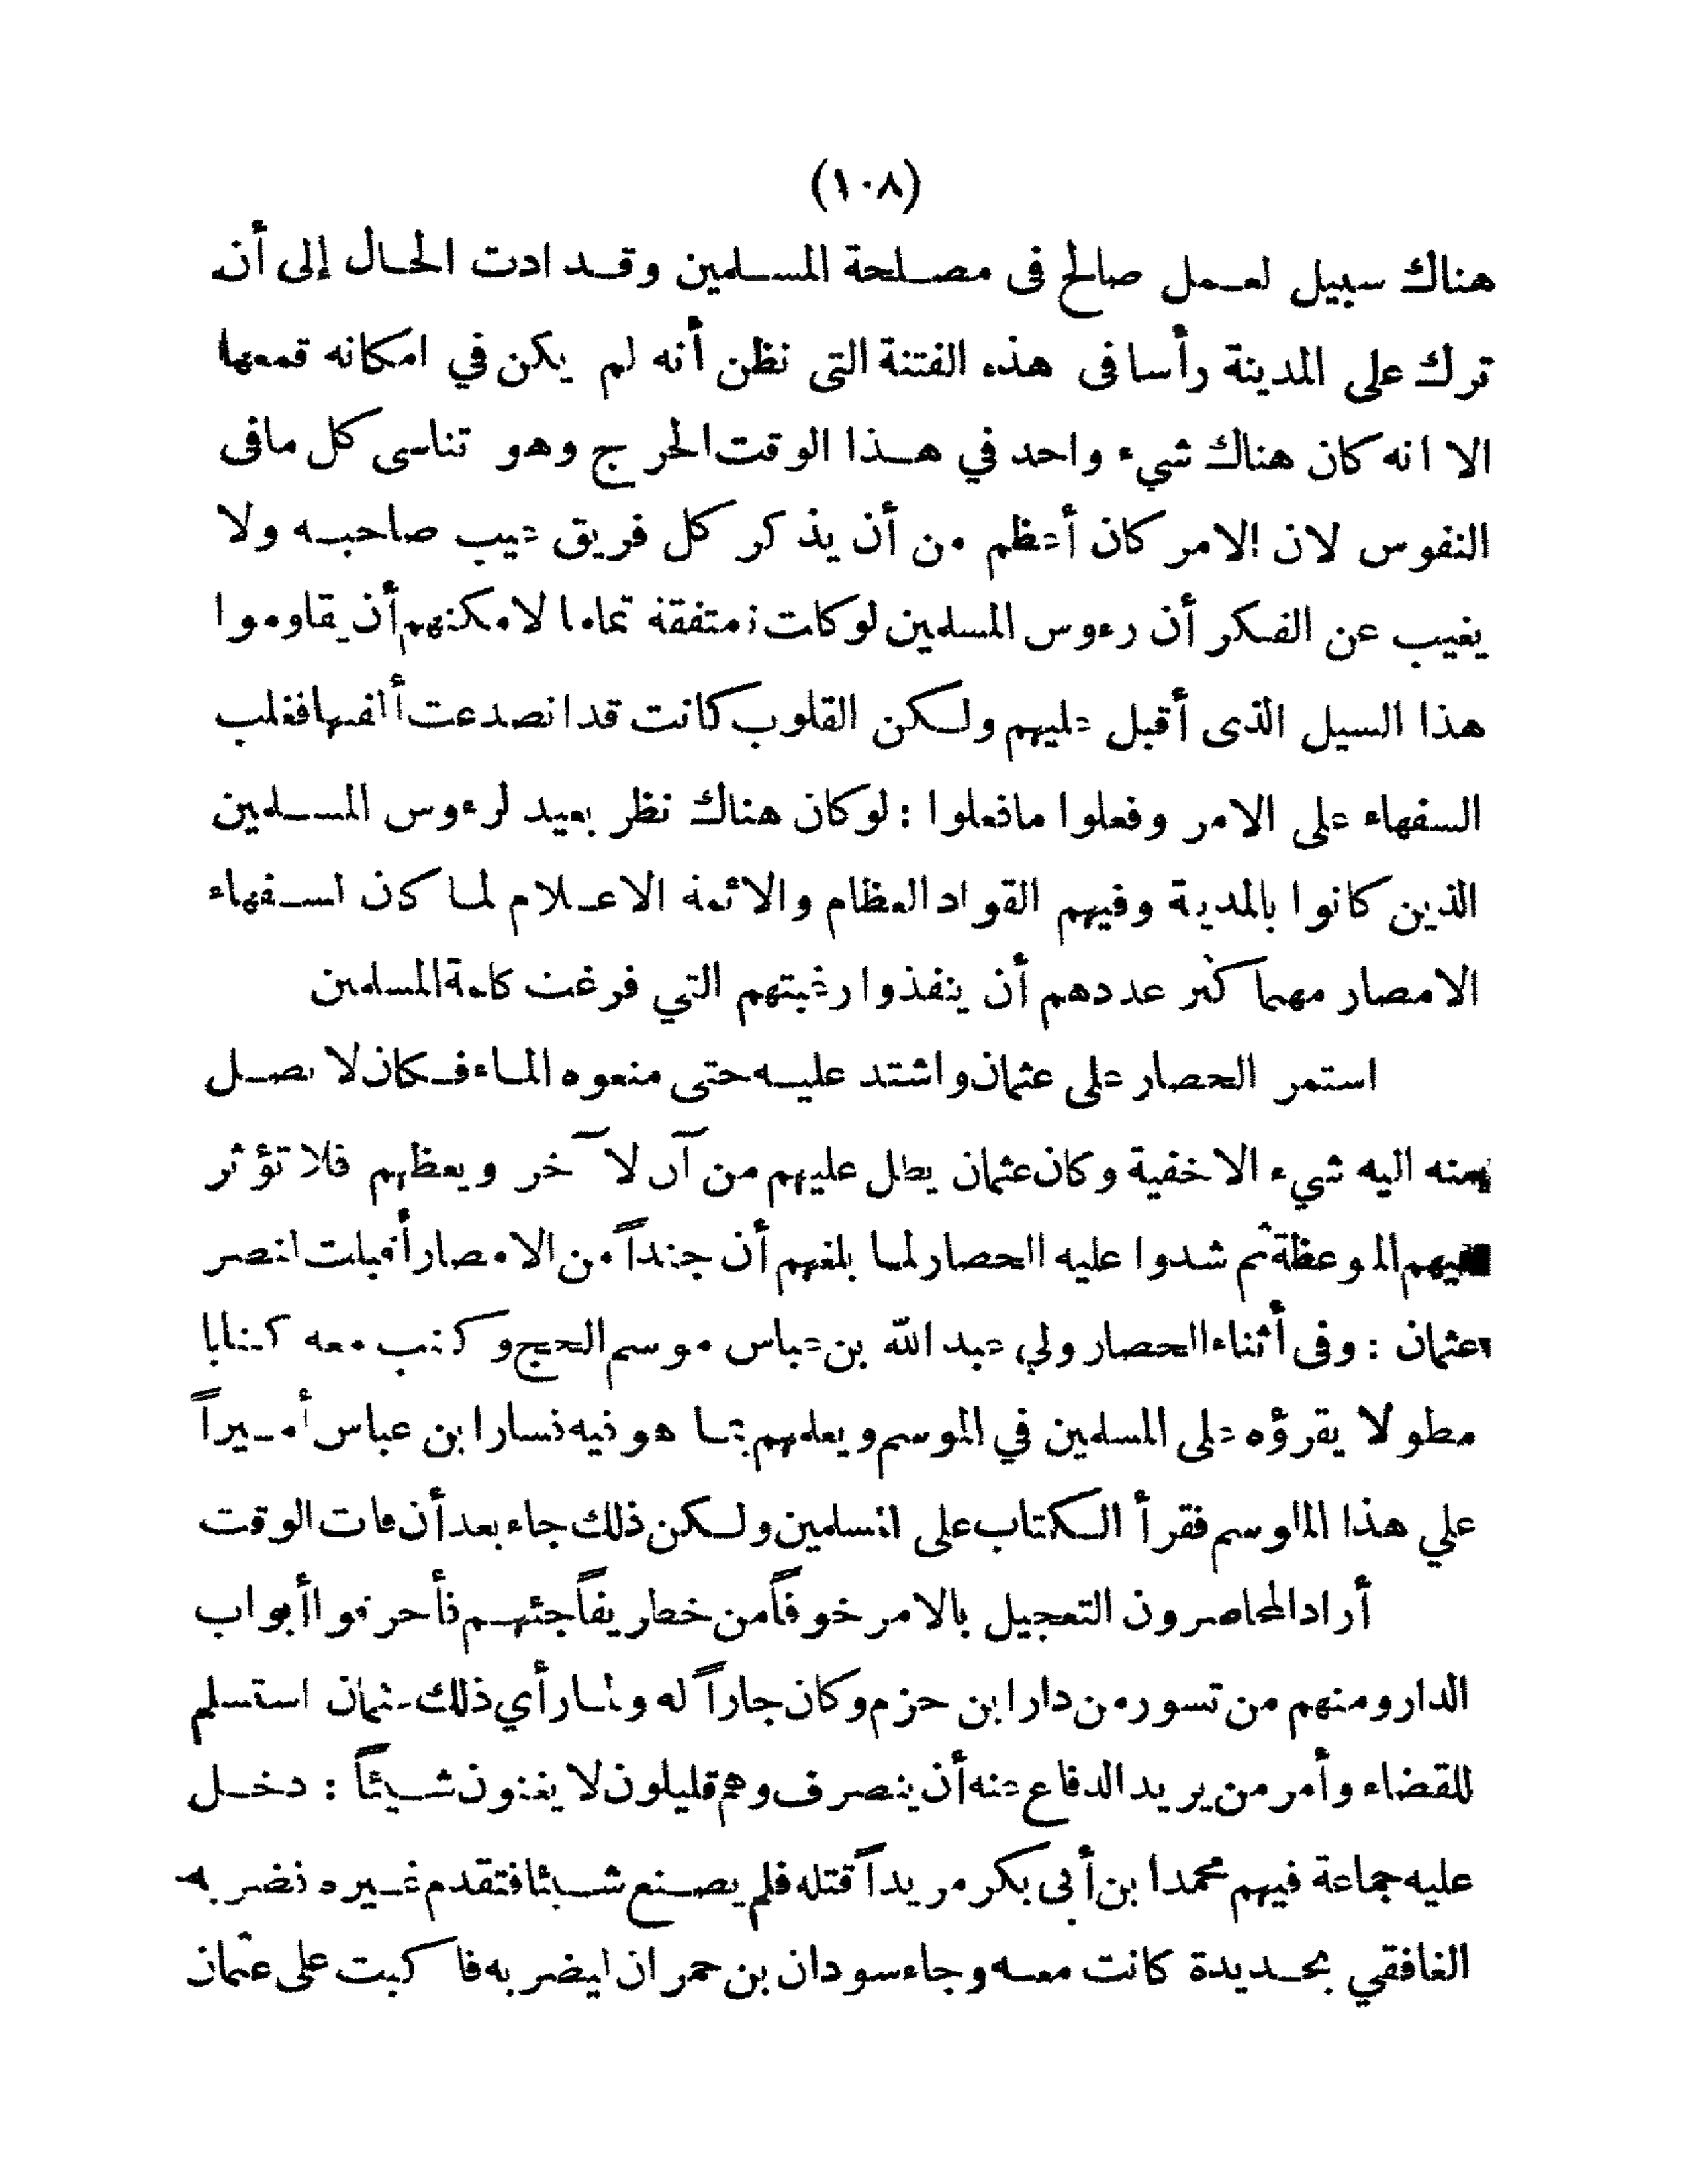 (١٠٨)
هناك سبيل لعمل صالح فى مصلحة المسلمين وقد ادت الحال إلى أن
ترك على المدينة رأسا فى هذه الفتنة التى نظن أنه لم يكن في امكانه قمعها
الا انه كان هناك شيء واحد في هذا الوقت الحرج وهو تناسى كل مافى
النفوس لان الامر كان أعظم من أن يذكر كل فريق عيب صاحبه ولا
يغيب عن الفكر أن رءوس المسلمين لوكانت متفقة تماما لامكنهم أن يقاوموا
هذا السيل الذى أقبل عليهم ولكن القلوب كانت قد انصدعت ألفتها فغلب
السفهاء على الامر وفعلوا مافعلوا : لوكان هناك نظر بعيد لرءوس المسلمين
الذين كانوا بالمدينة وفيهم القواد العظام والائمة الاعلام لما كان لسفهاء
الامصار مهما كثر عددهم أن ينفذوا رغبتهم التي فرغت كلمة المسلمين
استمر الحصار على عثمان واشتد عليه حتى منعوه الماء فكان لا يصل
منه اليه شيء الا خفية وكان عثمان يطل عليهم من آن لآخر ويعظهم فلا تؤثر
فيهم الموعظة ثم شدوا عليه الحصار لما بلغهم أن جنداً من الامصار أقبلت لنصر
عثمان : وفى أثناء الحصار ولي عبد الله بن عباس موسم الحج وكتب معه كتابا
مطولا يقرؤه على المسلمين في الموسم ويعلمهم بما هو فيه فسار ابن عباس أميراً
علي هذا الموسم فقرأ الكتاب على المسلمين ولكن ذلك جاء بعد أن فات الوقت
أراد المحاصرون التعجيل بالامر خوفاً من خطر يفاجئهم فأحرقوا أبواب
الدار ومنهم من تسور من دار ابن حزم وكان جاراً له ولما رأي ذلك عثمان استسلم
للقضاء وأمر من يريد الدفاع عنه أن ينصرف وهم قليلون لا يغنون شيئاً : دخل
عليه جماعة فيهم محمد ابن أبى بكر مريداً قتله فلم يصنع شيئا فتقدم غيره فضربه
الغافقي بحديدة كانت معه وجاء سودان بن حمران ليضربه فاكبت على عثمان